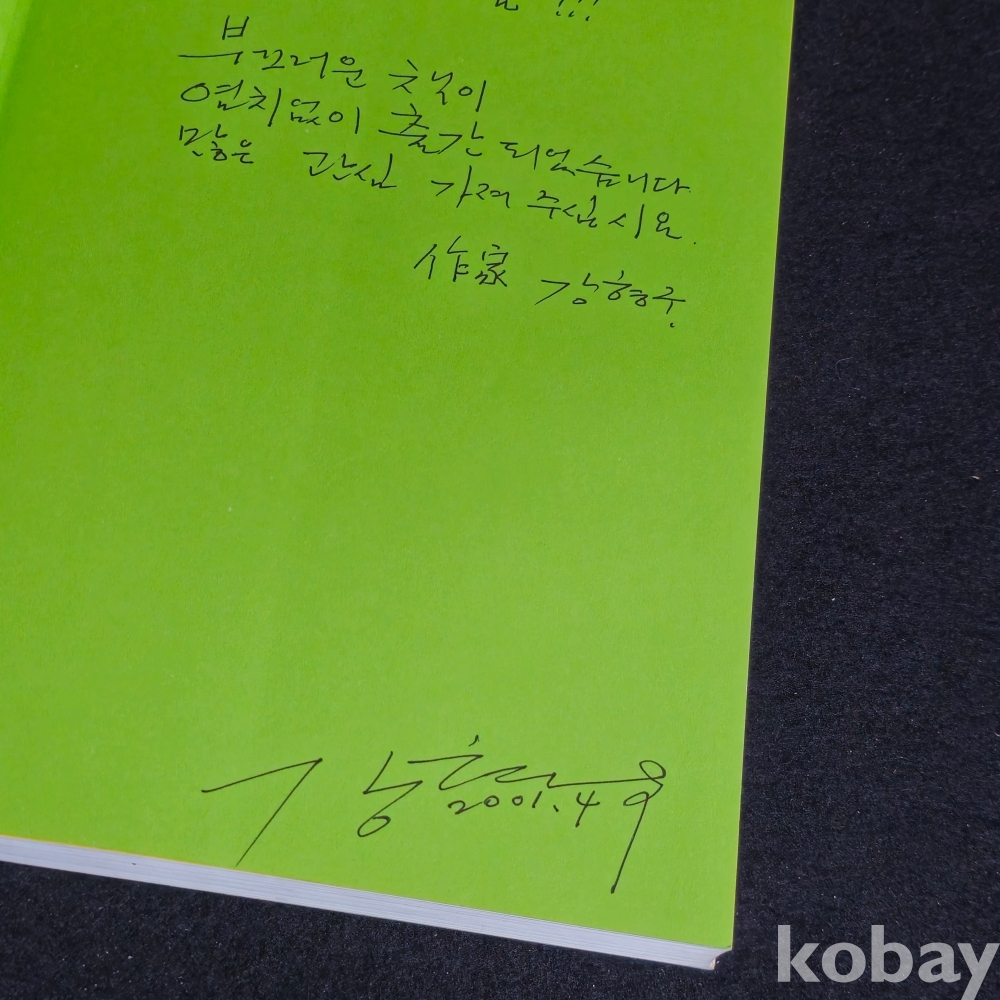 !!!
부끄러운 책이
염치없이 출간 되었습니다.
많은 관심 가져 주십시요.
作家 강형구.
2001. 4
kobay